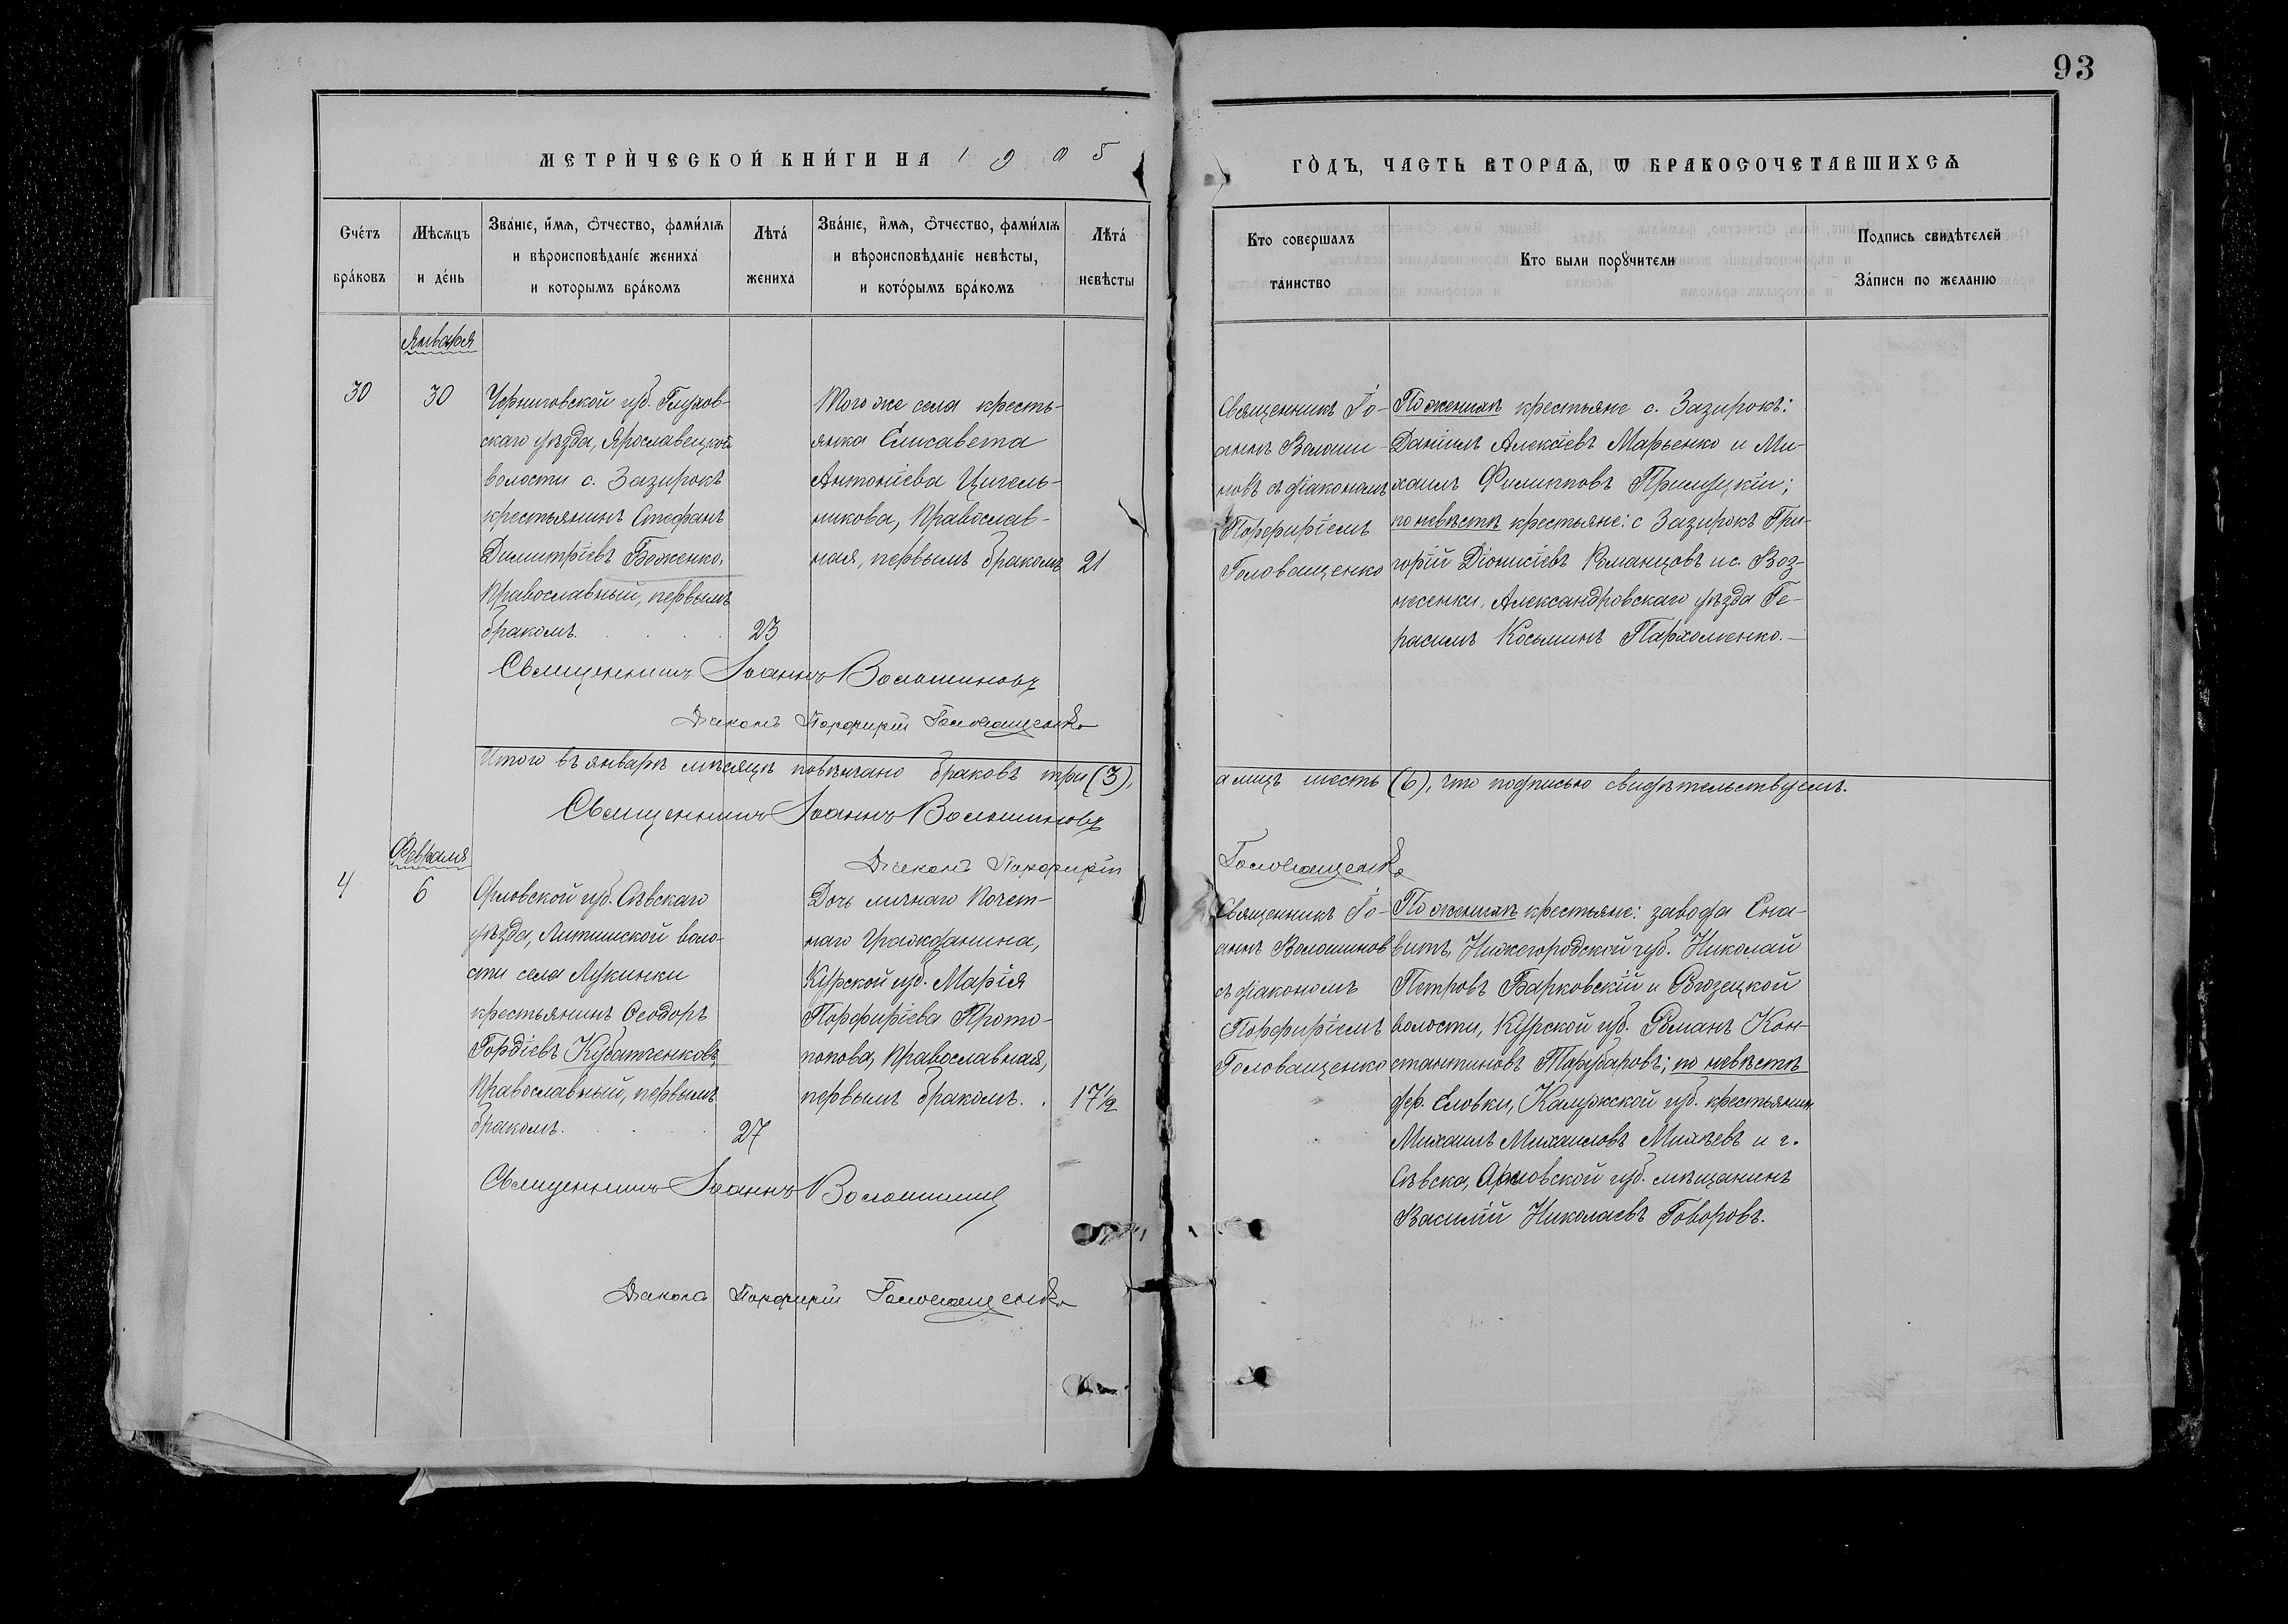 93
МЕТРИ́ЧЕСКОЙ КНИ́ГИ НА 1905
ГО́ДЪ, ЧАСТЬ ВТОРАѦ, Ѡ БРАКОСОЧЕТАВШИХСѦ
Сче́тъ бра́ковъ
Мѣсѧцъ и де́нь
Зва́нїе, и́мѧ, о́тчество, фами́лїѧ
и вѣроисповѣ́данїе жениха́
и которымъ бра́комъ
Лѣта́ жениха
Зва́нїе, и́мѧ, о́тчество, фами́лїѧ
и вѣроисповѣданїе невѣ́сты,
и кото́рымъ бра́комъ
Лѣта́ невѣсты
Кто совершалъ
таинство
Кто были порꙋчители
Подпись свидѣтелей
За́писи по желанїю
Января
30
30
Черниговской губ. Глухов-
скаго уѣзда, Ярославецкой
волости с. Зазирокъ
крестьянинъ Стефанъ
Димитріевъ Боженко,
православный, первымъ
бракомъ.
23
Того же села кресть-
янка Елисавета
Антоніева Цигель-
никова, православ-
ная, первымъ бракомъ
21
Священникъ Іо-
аннъ Волоши-
новъ съ діакономъ
Порфиріемъ
Головащенко
По женихѣ крестьяне с. Зазирокъ:
Даніилъ Алексіевъ Марьенко и Ми-
хаилъ Филипповъ Прилуцкій;
по невѣстѣ крестьяне: с Зазирокъ Гри-
горій Діонисіевъ Романцовъ и с. Воз-
несенки, Александровскаго уѣзда Ге-
расимъ Косьминъ Пархоменко.—
Священникъ Іоаннъ Волошиновъ
Діаконъ Порфирій Головащенко
Итого въ январѣ мѣсяцѣ повѣнчано браковъ три (3),
а лицъ шесть (6), что подписью свидѣтельствуемъ.
Священникъ Іоаннъ Волошиновъ
Діаконъ Порфирій
Головащенко
Февраля
4
6
Орловской губ. Сѣвскаго
уѣзда, Литишской воло-
сти села Лукинки
крестьянинъ Ѳеодоръ
Гордіевъ Кубатченковъ,
православный, первымъ
бракомъ.
27
Дочь личнаго почет-
наго гражданина,
Курской губ. Марія
Порфиріева Прото-
попова, православная,
первымъ бракомъ.
17½
Священникъ Іо-
аннъ Волошинов
съ діакономъ
Порфиріемъ
Головащенко
По женихѣ крестьяне: завода Сна-
витъ, Нижегородской губ. Николай
Петровъ Барковскій и
волости, Курской губ. Романъ Кон-
стантиновъ; по невѣстѣ
дер. Еловки, Калужской губ. крестьянин
Михаилъ Михаиловъ Михѣевъ и г.
Сѣвска, Орловской губ. мѣщанинъ
Василій Николаевъ Говоровъ.
Священникъ Іоаннъ Волошиновъ
Діаконъ Порфирій Головащенко